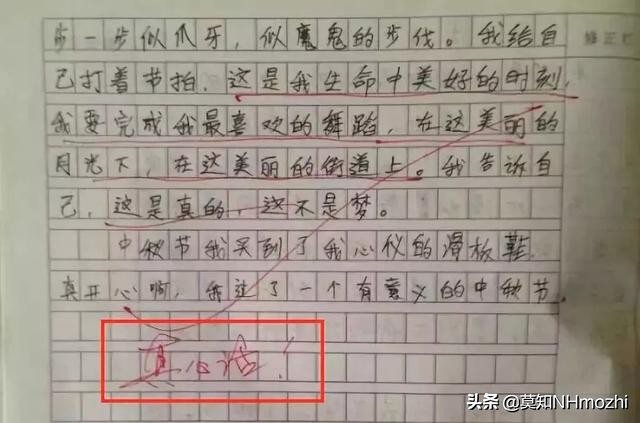 步一步似爪牙，似魔鬼的步伐。我给自
己打着节拍，这是我生命中美好的时刻，
我要完成我最喜欢的舞蹈，在这美丽的
月光下，在这美丽的街道上。我告诉自
己，这是真的，这不是梦。
中秋节我买到了我心仪的滑板鞋，
真开心啊，我过了一个有意义的中秋节。
真心话！
头条 @莫知NHmozhi